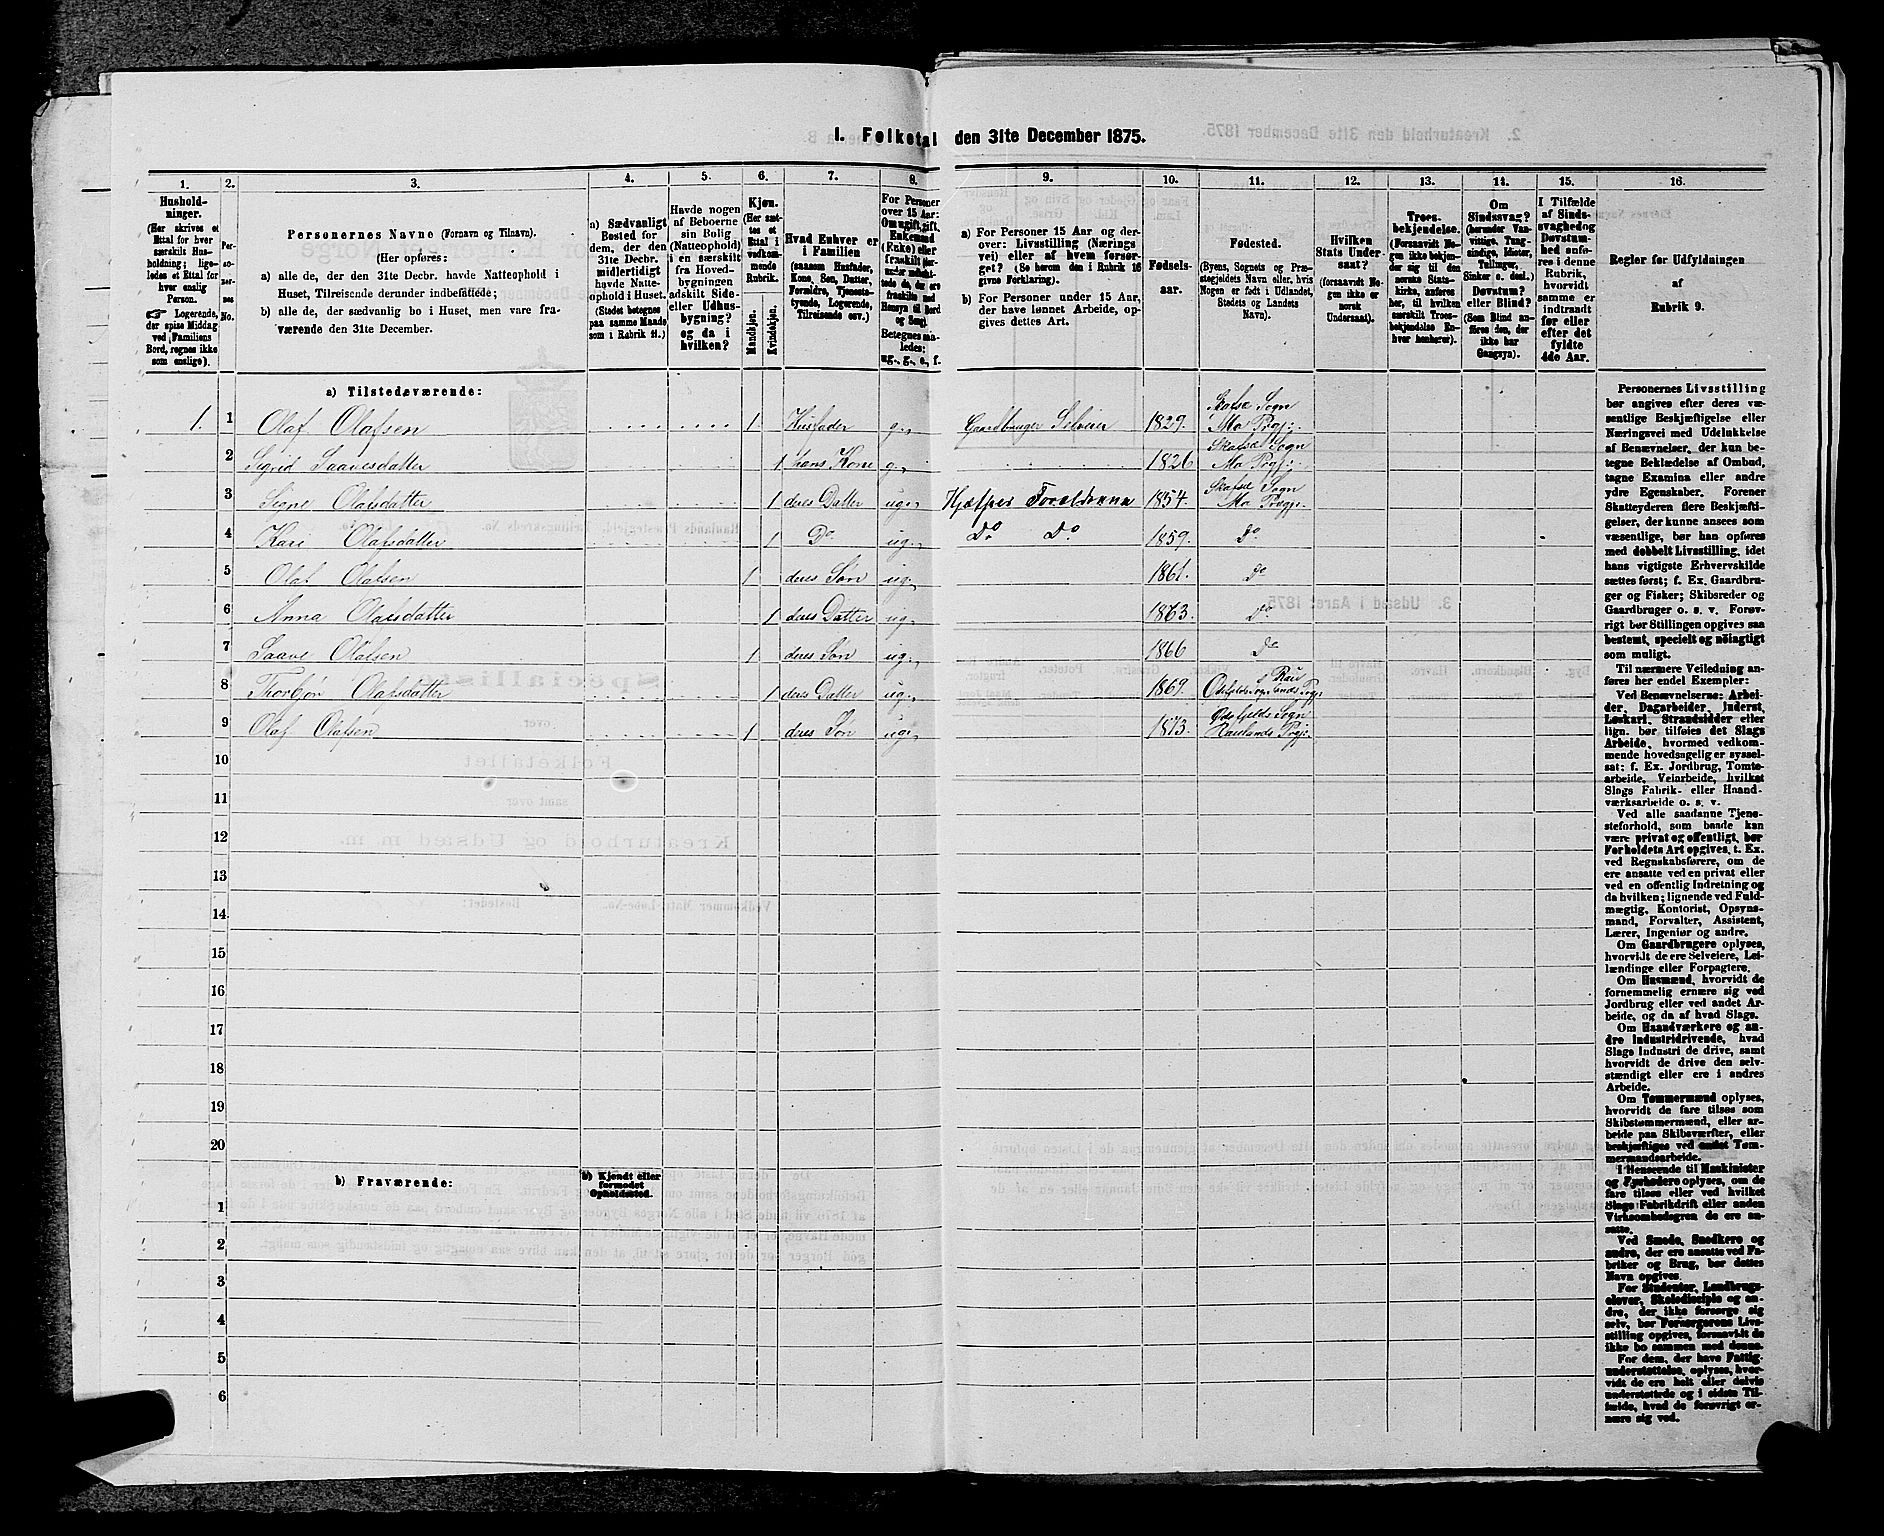 1. Folketal den 31te December 1875.
1.
Hushold-
ninger.
(Her skrives et
Ettal for hver
særskilt Hus-
holdning; lige-
ledes et Ettal for
hver enslig
Person.
☛ Logerende,
der spise Middag
ved Familiens
Bord, regnes ikke
som enslige).
2.
Per-
so-
ner-
nes
No.
3.
Personernes Navne (Fornavn og Tilnavn).
(Her opføres:
a) alle de, der den 31te Decbr. havde Natteophold i
Huset, Tilreisende derunder indbefattede;
b) alle de, der sædvanlig bo i Huset, men vare fra-
værende den 31te December.
4.
a) Sædvanligt
Bosted for
dem, der den
31te Decbr.
midlertidigt
havde Natte-
ophold i Huset.
(Stedet betegnes
paa samme Maade
som i Rubrik 11.)
5.
Havde nogen
af Beboerne
sin Bolig
(Natteophold)
i en særskilt
fra Hoved-
bygningen
adskilt Side-
eller Udhus-
bygning?
og da i
hvilken?
6.
Kjøn.
(Her sæt-
tes et
Ettal i
vedkom-
mende
Rubrik.
Mandkjøn.
Kvindekjøn.
7.
Hvad Enhver er
i Familien
(saasom Husfader,
Kone, Søn, Datter,
Forældre, Tjeneste-
tyende, Logerende,
Tilreisende osv.)
8.
For Personer
over 15 Aar:
Om ugift, gift,
Enkemand
(Enke) eller
fraskilt
Betegnes saa-
ledes:
ug., g., e., f.
9.
a) For Personer 15 Aar og der-
over: Livsstilling (Nærings-
vei) eller af hvem forsør-
get? (Se herom den i Rubrik 16
givne Forklaring).
b) For Personer under 15 Aar,
der have lønnet Arbeide, op-
gives dettes Art.
10.
Fødsels-
aar.
11.
Fødested.
(Byens, Sognets og Præ-
stegjeldets Navn eller, hvis
Nogen er født i Udlandet,
Stedets og Landets
Navn).
12.
Hvilken
Stats Under-
saat?
(forsaavidt No-
gen ikke er
norsk
Undersaat).
13.
Troes-
bekjendelse.
(Forsaavidt No-
gen ikke bekjen-
der sig til den
norske Stats-
kirke, anføres
her, til hvilken
særskilt Troes-
bekjendelse En-
hver henhører).
14.
Om
Sindssvag?
(herunder Van-
vittige, Tung-
sindige, Idioter,
Tullinger,
Sinker o. desl.)
Døvstum?
eller Blind?
(Som Blind an-
føres den, der
ikke har
Gangsyn).
15.
I Tilfælde
af Sinds-
svaghed og
Døvstum-
hed anfø-
res i denne
Rubrik,
hvorvidt
samme er
indtraadt
før eller
efter det
fyldte
4de Aar.
16.
Regler for Udfyldningen
af
Rubrik 9.
a) Tilstedeværende:
1. 1 Olaf Olafsen 1 Husfader g., Gaardbruger Selveier 1829. Skafse Sogn Mo Prgj:
2 Sigrid Saavesdatter 1 hans Kone g., 1826 Skafse Sogn Mo Prgj:
3 Signe Olafsdatter 1 deres Datter ug., Hjælper Forældrene 1854. Skafse Sogn Mo Prgj:
4 Kari Olafsdatter 1 Do ug., Do Do 1859. Do
5 Olaf Olafsen 1 deres Søn ug. 1861. Do
6 Anna Olafsdatter 1 deres Datter ug. 1863. Do
7 Saave Olafsen 1 deres Søn ug., 1866 Do
8 Thorbjør Olafsdatter 1 deres Datter ug. 1869.
9 Olaf Olafsen 1 deres Søn ug. 1873. Sogn Raulands Prgj:
10
11
12
13
14
15
16
17
18
19
20
b) Fraværende:
b) Kjendt eller
formodet
Opholdssted.
1
2
3
4
5
6
Personernes Livsstilling
bør angives efter deres væ-
sentlige Beskjæftigelse eller
Næringsvei med Udelukkelse
af Benævnelser, der kun be-
tegne Beklædelse af Ombud,
tagne Examina eller andre
ydre Egenskaber. Forener
Skatteyderen flere Beskjæfti-
gelser, der kunne ansees som
væsentlige, bør han opføres
med dobbelt Livsstilling, idet
hans vigtigste Erhvervskilde
sættes først; f. Ex. Gaardbru-
ger og Fisker; Skibsreder og
Gaardbruger o. s. v. Forøv-
rigt bør Stillingen opgives saa
bestemt, specielt og nøiagtigt
som muligt.
Til nærmere Veiledning an-
føres her endel Exempler:
Ved Benævnelserne: Arbei-
der, Dagarbeider, Inderst,
Løskarl, Strandsidder eller
lign. bør tilføies det Slags
Arbeide, hvormed vedkom-
mende hovedsagelig er syssel-
sat; f. Ex. Jordbrug, Tomte-
arbeide, Veiarbeide, hvilket
Slags Fabrik- eller Haand-
værksarbeide o. s. v.
Ved alle saadanne Tjene-
steforhold, som baade kan
være privat og offentligt, bør
Forholdets Art opgives, t. Ex.
ved Regnskabsførere, om de
ere ansatte ved en privat eller
ved en offentlig Indretning og
da hvilken; lignende ved Fuld-
mægtig, Kontorist, Opsyns-
mand, Forvalter, Assistent,
Lærer, Ingeniør og andre.
Om Gaardbrugere oplyses,
hvorvidt de ere Selveiere, Lei-
lændinge eller Forpagtere.
Om Husmænd, hvorvidt de
fornemmelig ernære sig ved
Jordbrug eller ved andet Ar-
beide, og da af hvad Slags.
Om Haandværkere og an-
dre Industridrivende, hvad
Slags Industri de drive, samt
hvorvidt de drive den selv-
stændigt eller ere i andres
Arbeide.
Om Tømmermænd oplyses,
hvorvidt de fare tilsøs som
Skibstømmermænd, eller ar-
beide paa Skibsværfter, eller
beskjæftiges ved andet Tøm-
mermandsarbeide.
I Henseende til Maskinister
og Fyrbødere oplyses, om de
fare tilsøs eller ved hvilket
Slags Fabrikdrift eller anden
Virksomhedsgren de ere an-
satte.
Ved Smede, Snedkere og
andre, der ere ansatte ved Fa-
briker og Brug, bør dettes
Navn opgives.
For Studenter, Landbrugs-
elever, Skoledisciple og an-
dre, der ikke forsørge sig
selv, bør Forsørgerens Livs-
stilling opgives, forsaavidt de
ikke bo sammen med denne.
For dem, der have Fattig-
understøttelse, oplyses, hvor-
vidt de ere helt eller delvis
understøttede og i sidste Til-
fælde, hvad de forøvrigt er-
nære sig ved.